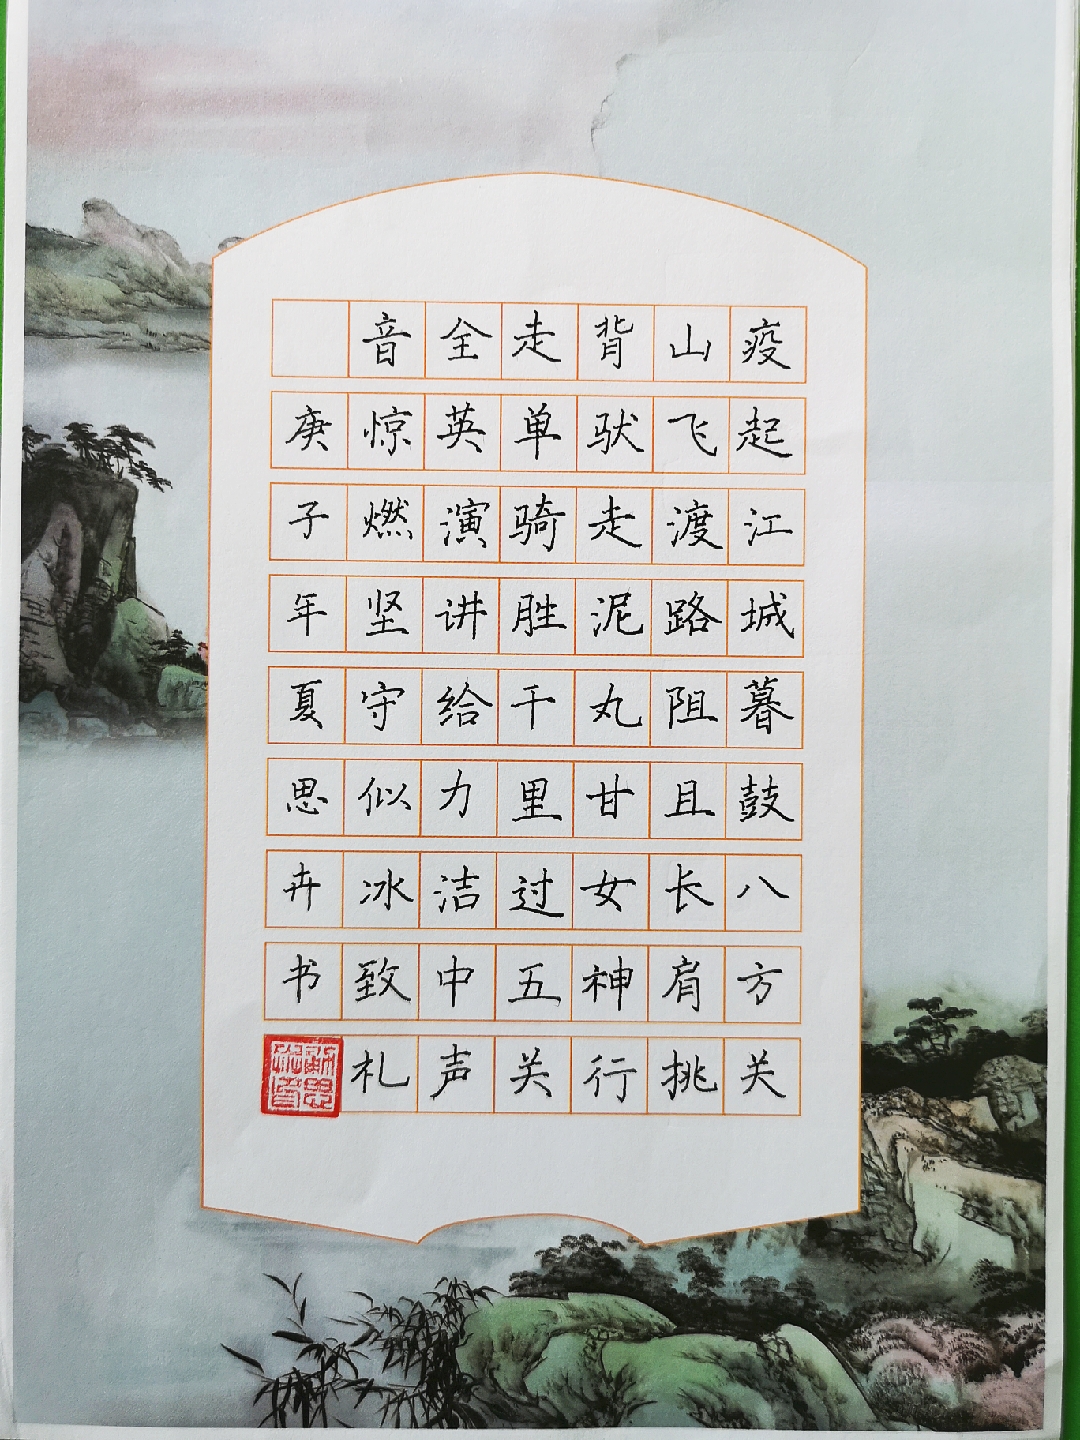 疫起江城暮鼓八方关
山飞渡路阻且长肩挑
背驮走泥丸甘女神行
走单骑胜千里过五关
全英演讲给力洁中声
音惊燃坚守似冰致札
庚子年夏思卉书